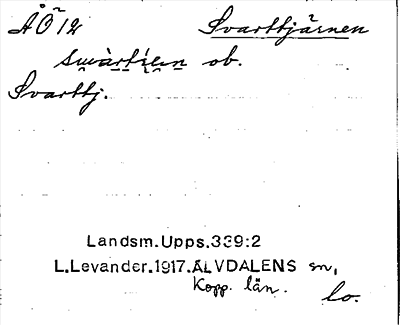 ÅÖ12 Svarttjärnen
ob.
Svarttj.
Landsm.Upps.339:2
L.Levander.1917.ÄLVDALENS sn,
Kopp. län.
lo.